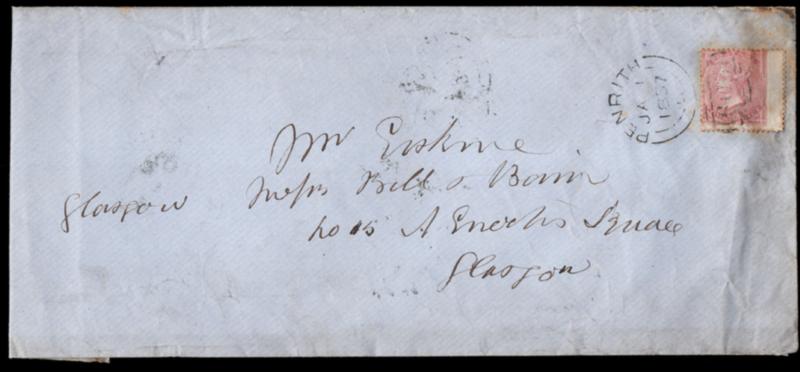 PENRITH
JA 1
1857
Mr Erskine
Messrs Bell & Bain
No 15 St Enochs Square
Glasgow
Glasgow